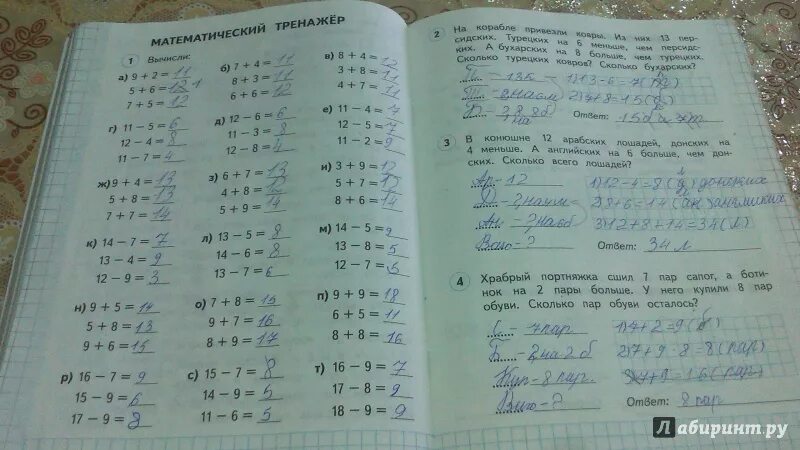 МАТЕМАТИЧЕСКИЙ ТРЕНАЖЁР
1 Вычисли:
а) 9 + 2 = 11
5 + 6 =
7 + 5 = 12
б) 7 + 4 = 11
8 + 3 = 11
6 + 6 = 12
в) 8 + 4 = 12
3 + 8 = 11
4 + 7 = 11
г) 11 – 5 = 6
12 – 4 = 8
11 – 7 = 4
д) 12 – 6 = 6
11 – 3 = 8
12 – 8 = 4
е) 11 – 4 = 7
12 – 5 = 7
11 – 2 = 9
ж) 9 + 4 = 13
5 + 8 = 13
7 + 7 = 14
з) 6 + 7 = 13
4 + 8 = 12
5 + 9 = 14
и) 3 + 9 = 12
5 + 7 = 12
8 + 6 = 14
к) 14 – 7 = 7
13 – 4 = 9
12 – 9 = 3
л) 13 – 5 = 8
14 – 6 = 8
13 – 7 = 6
м) 14 – 5 = 9
13 – 8 = 5
12 – 7 = 5
н) 9 + 5 = 14
5 + 8 = 13
9 + 6 = 15
о) 7 + 8 = 15
9 + 7 = 16
8 + 9 = 17
п) 9 + 9 = 18
6 + 5 = 11
8 + 8 = 16
р) 16 – 7 = 9
15 – 9 = 6
17 – 9 = 8
с) 15 – 7 = 8
14 – 9 = 5
11 – 6 = 5
т) 16 – 9 = 7
17 – 8 = 9
18 – 9 = 9
2 На корабле привезли ковры. Из них 13 пер-
сидских. Турецких на 6 меньше, чем персид-
ких. А бухарских на 8 больше, чем турецких.
Сколько турецких ковров? Сколько бухарских?
1) 13 – 6 = 7
2) 7 + 8 = 15
Ответ: 15 б
3 В конюшне 12 арабских лошадей, донских на
4 меньше. А английских на 6 больше, чем дон-
ских. Сколько всего лошадей?
Ар – 12 1) 12 – 4 = 8 (д) донских
Д – ? на 4 м 2) 8 + 6 = 14 (ан) английских
Ан – ? на 6 б 3) 12 + 8 + 14 = 34 (л)
Всего – ? Ответ: 34 л
4 Храбрый портняжка сшил 7 пар сапог, а боти-
нок на 2 пары больше. У него купили 8 пар
обуви. Сколько пар обуви осталось?
С – 7 пар 1) 7 + 2 = 9 (б)
Б – ? на 2 б 2) 7 + 9 – 8 = 8 (пар)
Куп – 8 пар.
Ответ: 8 пар
Лабиринт.ру